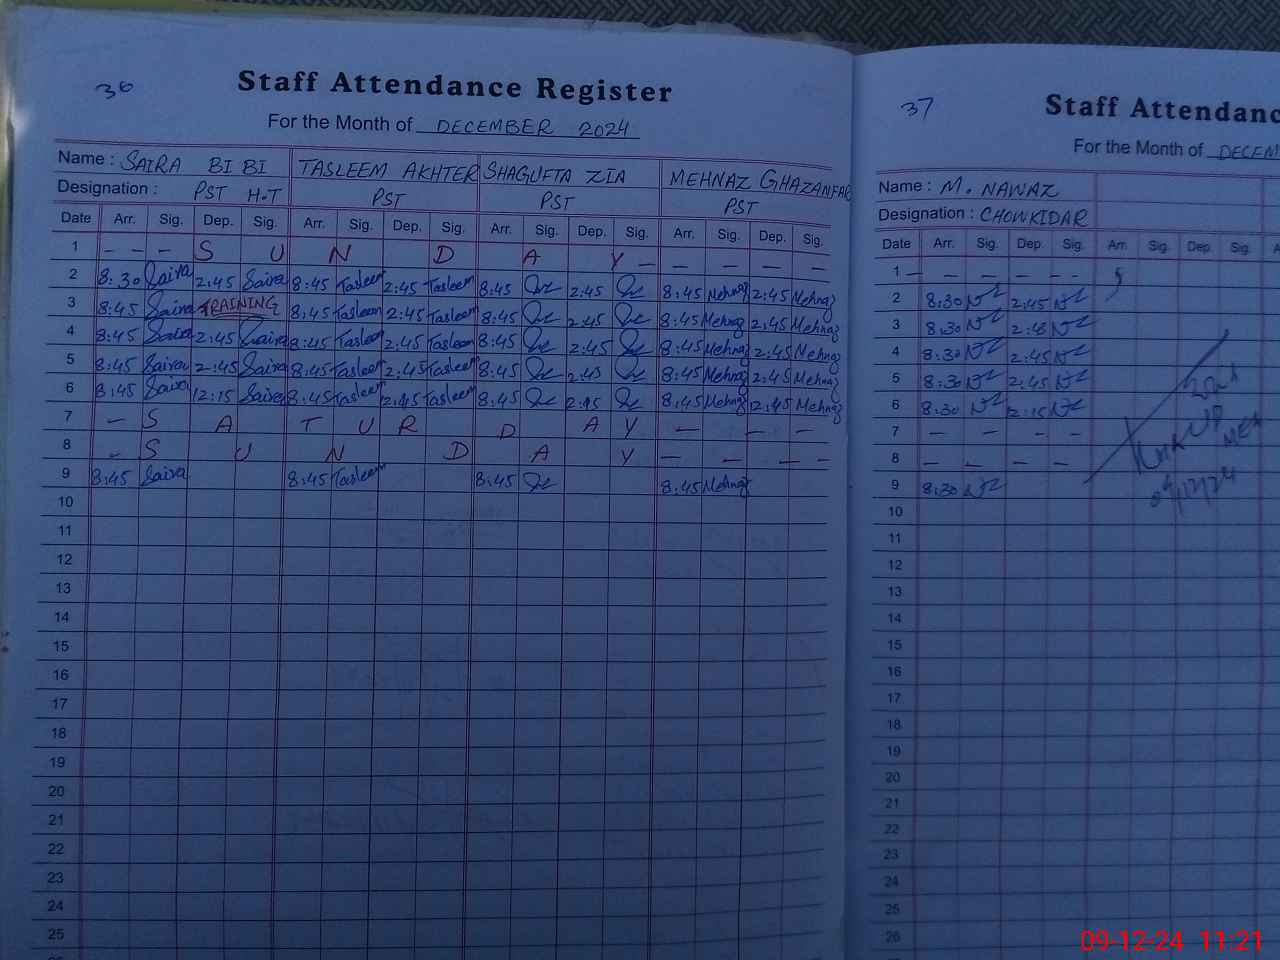 36
Staff Attendance Register
For the Month of DECEMBER 2024
Name : SAIRA BI BI TASLEEM AKHTER SHAGUFTA ZIA MEHNAZ GHAZANFAR
Designation : PST H.T PST PST PST
Date Arr. Sig. Dep. Sig. Arr. Sig. Dep. Sig. Arr. Sig. Dep. Sig. Arr. Sig. Dep. Sig.
1 - - - S U N D A Y - - - - -
2 8:30 Saira 2:45 Saira 8:45 Tasleem 2:45 Tasleem 8:45 2:45 8:45 Mehnaz 2:45 Mehnaz
3 8:45 Saira TRAINING 8:45 Tasleem 2:45 Tasleem 8:45 2:45 8:45 Mehnaz 2:45 Mehnaz
4 8:45 Saira 2:45 Saira 8:45 Tasleem 2:45 Tasleem 8:45 2:45 8:45 Mehnaz 2:45 Mehnaz
5 8:45 Saira 2:45 Saira 8:45 Tasleem 2:45 Tasleem 8:45 2:45 8:45 Mehnaz 2:45 Mehnaz
6 8:45 Saira 12:15 Saira 8:45 Tasleem Tasleem 8:45 8:45 Mehnaz 12:45 Mehnaz
7 - S A T U R D A Y - - -
8 - S U N D A Y - - - -
9 8:45 Saira 8:45 Tasleem 8:45 8:45 Mehnaz
10
11
12
13
14
15
16
17
18
19
20
21
22
23
24
25
37
Staff Attendanc
For the Month of DECEM
Name : M. NAWAZ
Designation : CHOWKIDAR
Date Arr. Sig. Dep. Sig. Arr. Sig. Dep. Sig. A
1 - - - - -
2 8:30 2:45
3 8:30 2:45
4 8:30 2:45
5 8:30 2:45
6 8:30 12:15
7 - - - -
8 - - - -
9 8:30
10
11
12
13
14
15
16
17
18
19
20
21
22
23
24
25
26
09-12-24 11:21